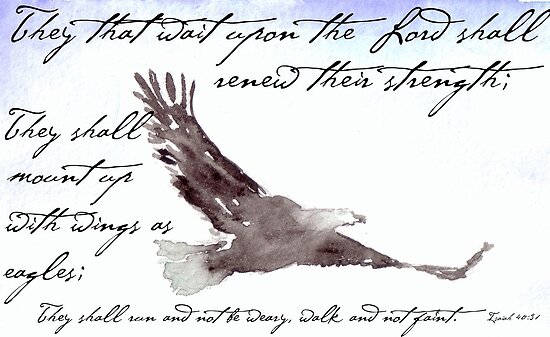 They that wait upon the Lord shall
renew their strength;
They shall
mount up
with wings as
eagles;
They shall run and not be weary, walk and not faint. Isaiah 40:31